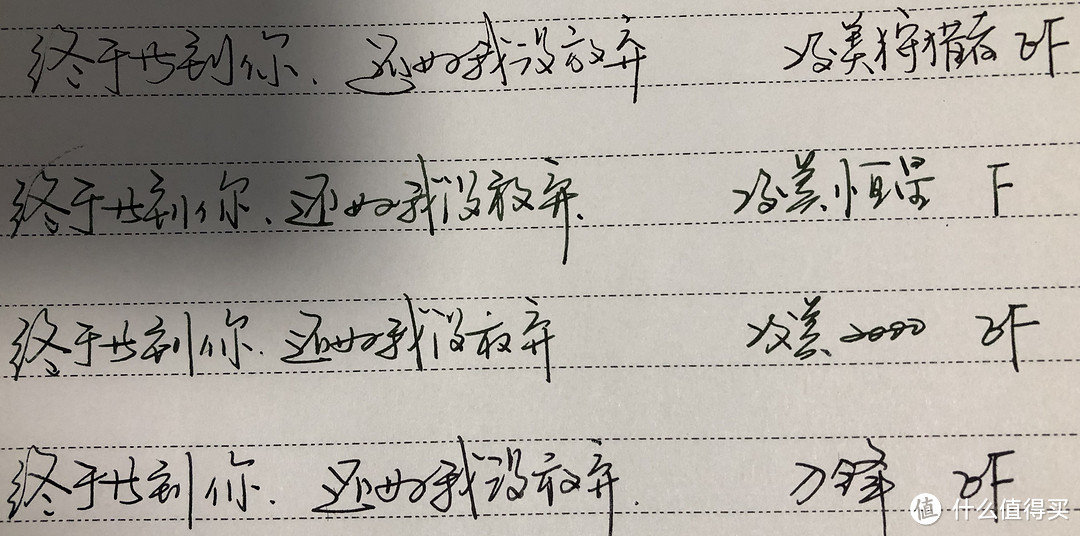 终于等到你，还好我没放弃 凌美狩猎者 EF
终于等到你．还好我没放弃． 凌美恒星 F
终于等到你．还好我没放弃 凌美2000 EF
终于等到你．还好我没放弃． 刀锋 EF
值 什么值得买